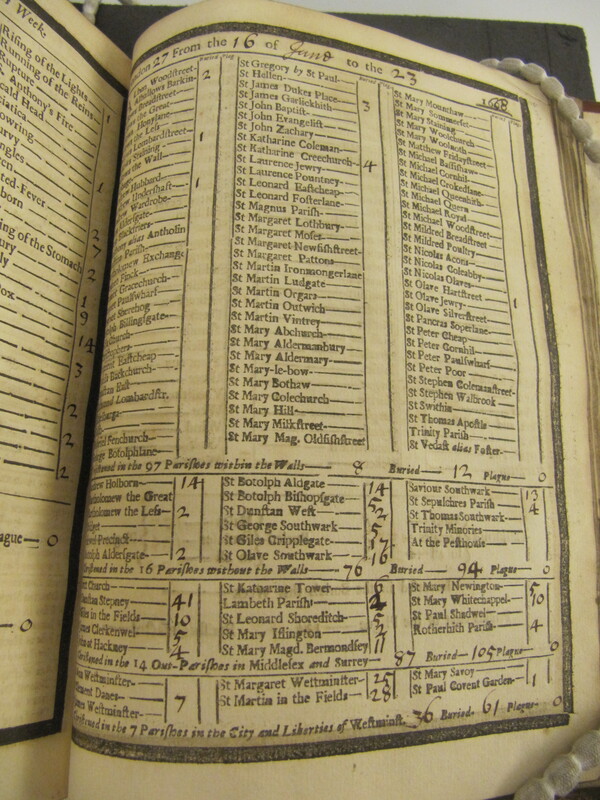 y Weeks
Rising of the Lights
Running of the Reins
Rupture of the
Anthony's Fire
cald Head
iatica
owring
urvy
ngles
ted-Fever
born
ng of the Stomach
ox
1
1
2
7
2
1
9
14
3
2
2
2
ague — 0
0
27 From the 16 of June to the 23 1668
Woodstreet 2
Allhallows Barkin
Breadstreet
the Great
Lombardstreet 1
the Wall
Hubbard
Undershaft 1
alias Antholin
Exchange
Finck
Gracechurch
Billingsgate
Eastcheap
Backchurch
Lombardstr.
Fenchurch
George Botolphlane
St Gregory by St Paul
St Hellen
St James Dukes Place
St James Garlickhith 3
St John Baptist
St John Evangelist
St John Zachary
St Katharine Coleman
St Katharine Creechurch 4
St Laurence Jewry
St Laurence Pountney
St Leonard Eastcheap
St Leonard Fosterlane
St Magnus Parish
St Margaret Lothbury
St Margaret Moses
St Margaret Newfishstreet
St Margaret Pattons
St Martin Ironmongerlane
St Martin Ludgate
St Martin Orgars
St Martin Outwich
St Martin Vintrey
St Mary Abchurch
St Mary Aldermanbury
St Mary Aldermary
St Mary-le-bow
St Mary Bothaw
St Mary Colechurch
St Mary Hill
St Mary Milkstreet
St Mary Mag. Oldfishstreet
St Mary Mounthaw
St Mary Sommerset
St Mary Staining
St Mary Woolchurch
St Mary Woolnoth
St Matthew Fridaystreet
St Michael Bassishaw
St Michael Cornhil
St Michael Crokedlane
St Michael Queenhith
St Michael Quern
St Michael Royal
St Michael Woodstreet
St Mildred Breadstreet
St Mildred Poultry
St Nicolas Acons
St Nicolas Coleabby
St Nicolas Olaves
St Olave Hartstreet 1
St Olave Jewry
St Olave Silverstreet
St Pancras Soperlane
St Peter Cheap
St Peter Cornhil
St Peter Paulswharf
St Peter Poor
St Stephen Colemanstreet
St Stephen Walbrook
St Swithin
St Thomas Apostle
Trinity Parish
St Vedast alias Foster
in the 97 Parishes within the Walls — 8 Buried — 12 Plague — 0
Holborn 14
the Great
the Less 2
Precinct
Aldersgate 2
St Botolph Aldgate 14
St Botolph Bishopsgate 5
St Dunstan West 2
St George Southwark 5
St Giles Cripplegate 17
St Olave Southwark 16
Saviour Southwark 13
St Sepulchres Parish 4
St Thomas Southwark
Trinity Minories
At the Pesthouse
in the 16 Parishes without the Walls — 76 Buried — 94 Plague — 0
Church
Stepney 41
in the Fields 10
Clerkenwel 5
at Hackney 4
St Katharine Tower 6
Lambeth Parish
St Leonard Shoreditch 5
St Mary Islington 2
St Mary Magd. Bermondsey 11
St Mary Newington 5
St Mary Whitechappel 10
St Paul Shadwel
Rotherhith Parish 4
in the 14 Out-Parishes in Middlesex and Surrey — 87 Buried — 105 Plague — 0
Westminster
Danes 7
Westminster
St Margaret Westminster 25
St Martin in the Fields 28
St Mary Savoy
St Paul Covent Garden 1
in the 7 Parishes in the City and Liberties of Westminst. 36 Buried — 61 Plague — 0